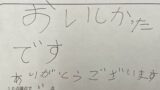 おいしかった
です
ありがとうございます